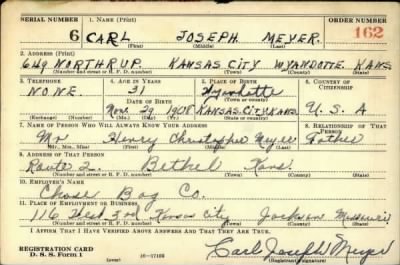 SERIAL NUMBER 1. NAME (Print) ORDER NUMBER
6 CARL JOSEPH MEYER. 162
(First) (Middle) (Last)
2. ADDRESS (Print)
649 NORTHRUP. KANSAS CITY WYANDOTTE KANS
(Number and street or R. F. D. number) (Town) (County) (State)
3. TELEPHONE 4. AGE IN YEARS 5. PLACE OF BIRTH 6. COUNTRY OF CITIZENSHIP
NONE. 31 Wyandotte
DATE OF BIRTH (Town or county)
Nov. 29 1908 KANSAS.CITY.KANS. U.S.A
(Exchange) (Number) (Mo.) (Day) (Yr.) (State or country)
7. NAME OF PERSON WHO WILL ALWAYS KNOW YOUR ADDRESS 8. RELATIONSHIP OF THAT PERSON
Mr Henry Christopher Meyer Father
(Mr., Mrs., Miss) (First) (Middle) (Last)
9. ADDRESS OF THAT PERSON
Route 2. Bethel Kans.
(Number and street or R. F. D. number) (Town) (County) (State)
10. EMPLOYER'S NAME
Chase Bag Co.
11. PLACE OF EMPLOYMENT OR BUSINESS
116 West 3rd Kansas City Jackson Missouri
(Number and street or R. F. D. number) (Town) (County) (State)
I AFFIRM THAT I HAVE VERIFIED ABOVE ANSWERS AND THAT THEY ARE TRUE.
REGISTRATION CARD
D. S. S. Form 1 (over) 16—17105 Carl Joseph Meyer
(Registrant's signature)